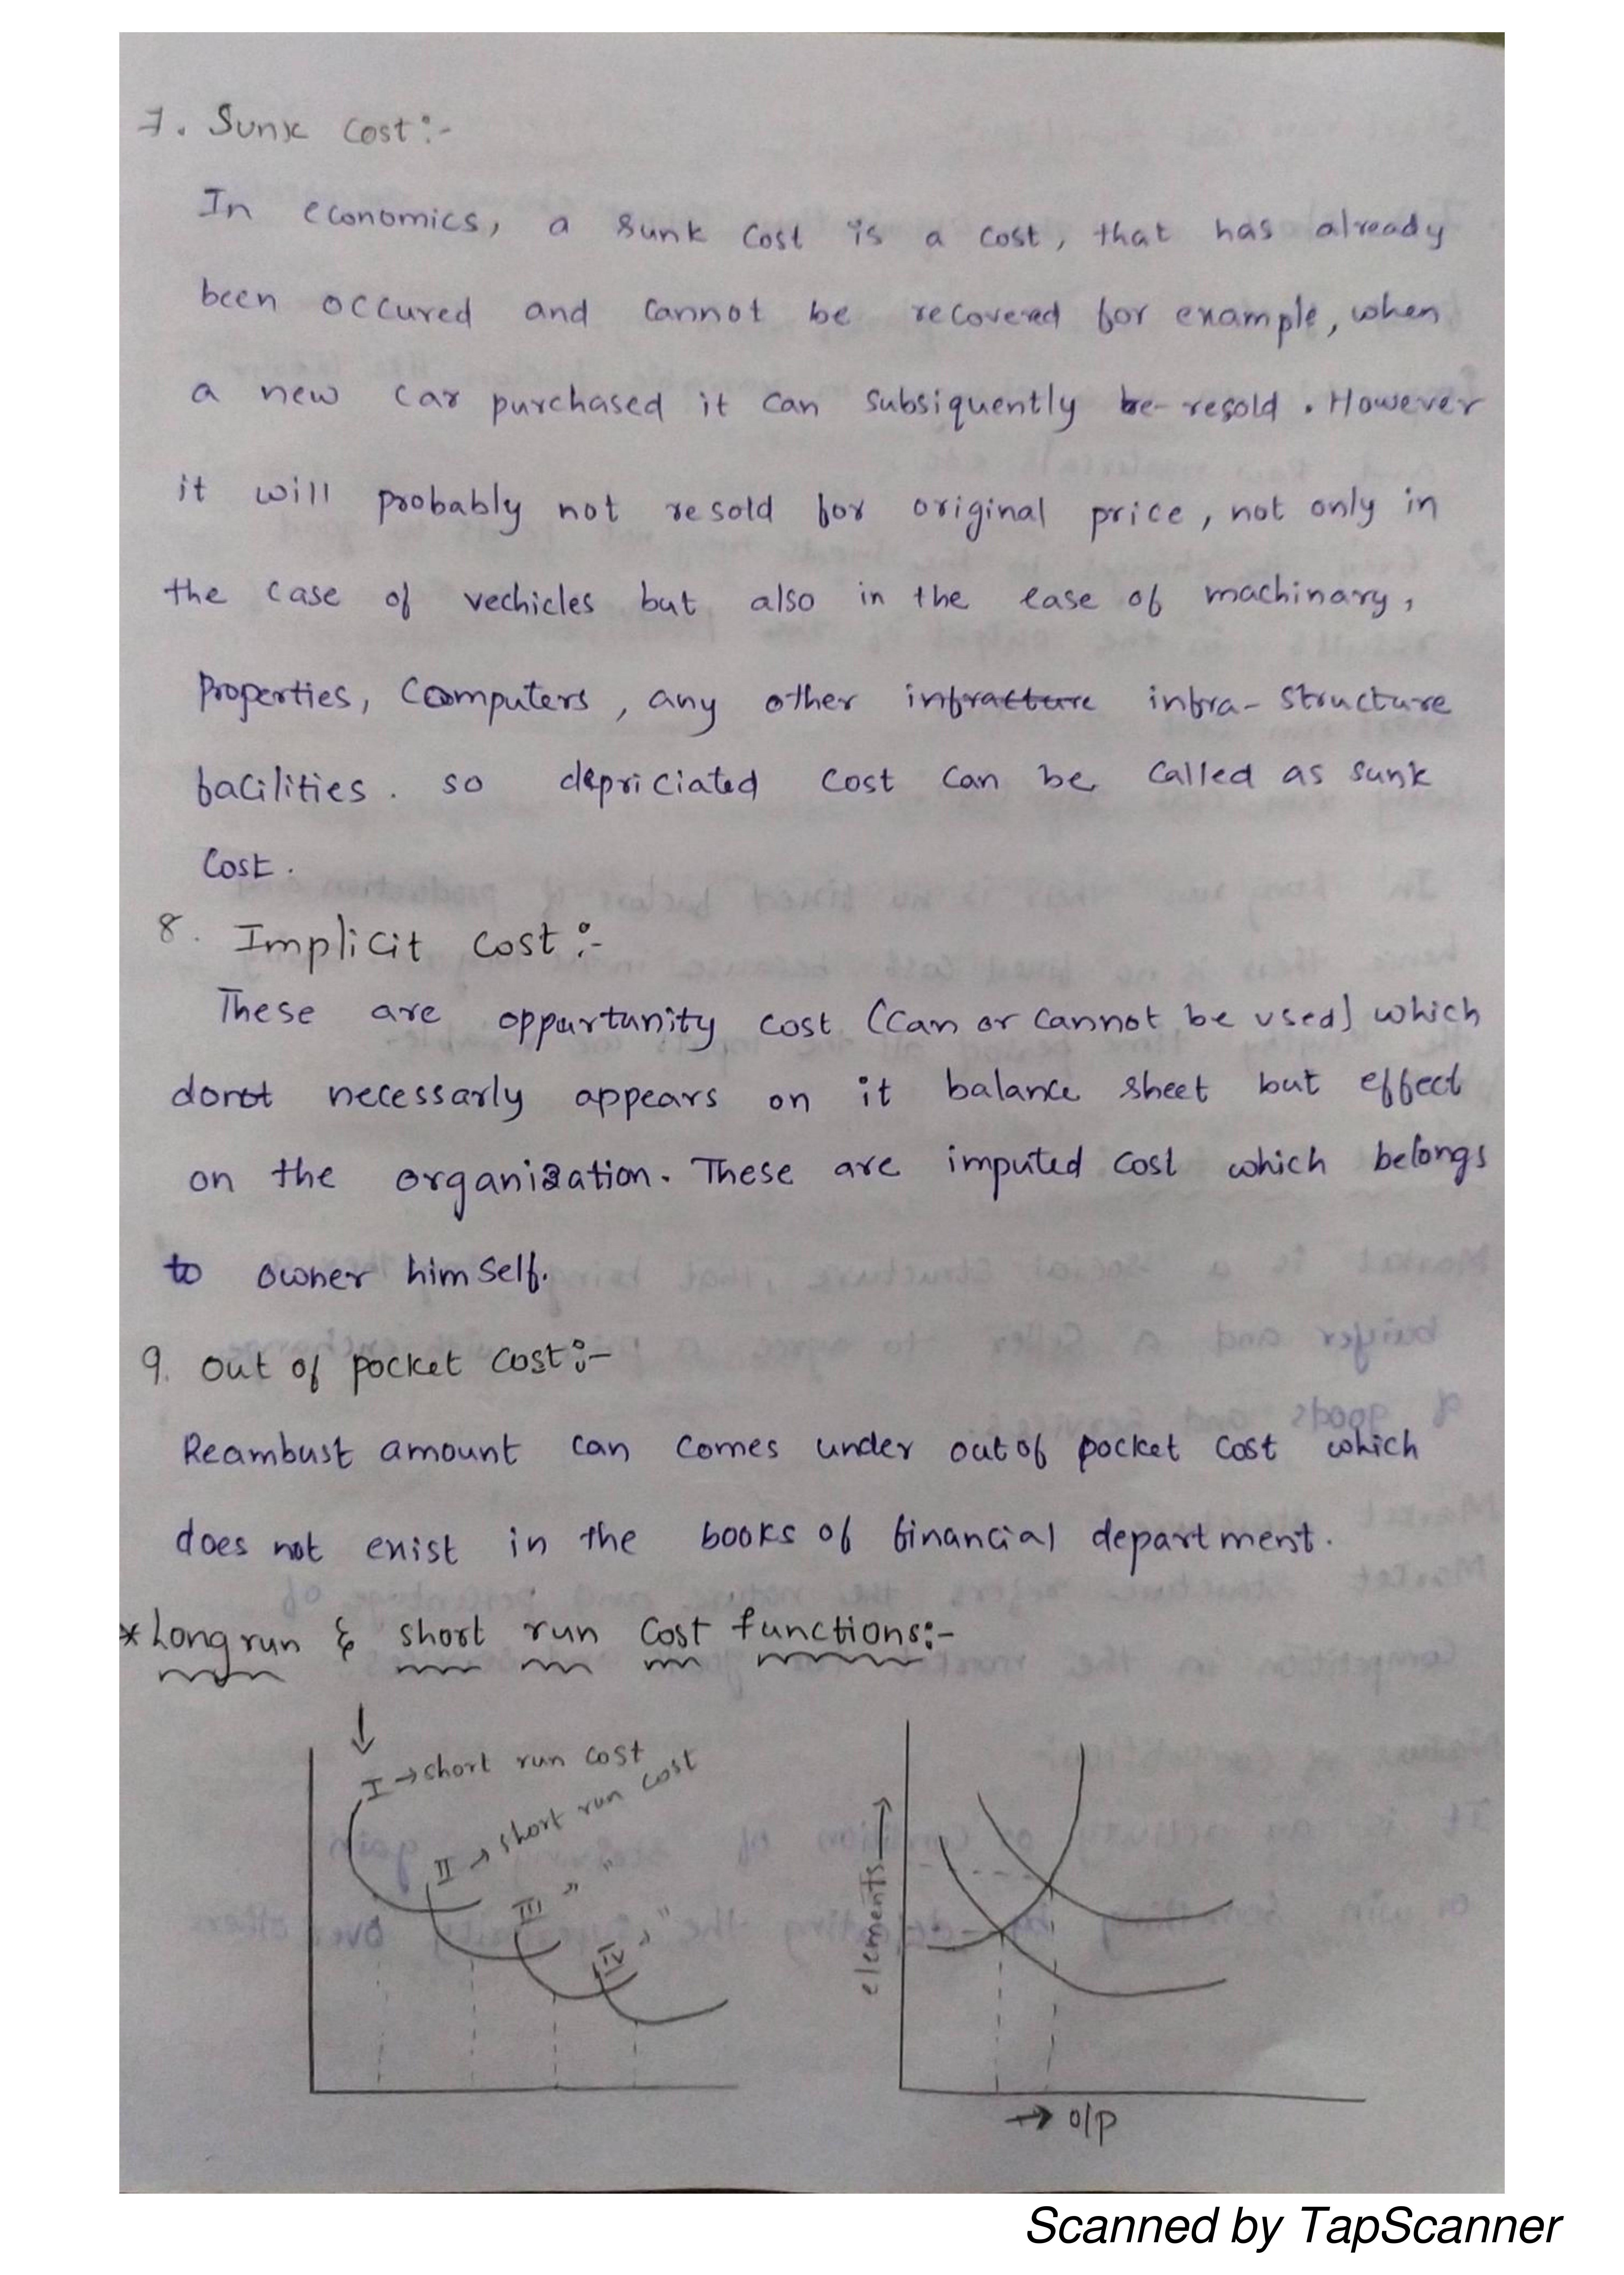 7. Sunk Cost:-
In economics, a sunk cost is a cost, that has already
been occured and cannot be recovered for example, when
a new car purchased it can subsiquently be resold. However
it will probably not resold for original price, not only in
the case of vechicles but also in the case of machinary,
Properties, Coomputers, any other infracture infra-structure
facilities. so depriciated cost can be called as sunk
Cost.
8. Implicit cost:-
These are oppurtunity cost (can or cannot be used) which
donot necessarly appears on it balance sheet but effect
on the organization. These are imputed cost which belongs
to owner himself.
9. out of pocket cost:-
Reambust amount can comes under out of pocket cost which
does not exist in the books of financial department.
*Long run & short run Cost functions:-
I → short run cost
II → short run cost
III " "
IV " "
elements →
→ o/p
Scanned by TapScanner